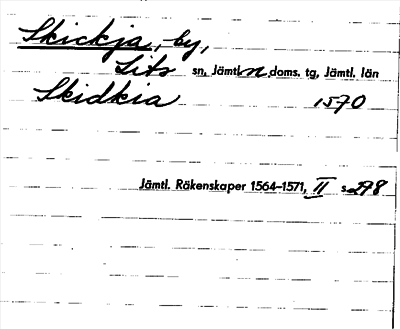 Skickja, by,
Lits sn, Jämtl. n. doms. tg, Jämtl. län
Skidkia 1570
Jämtl. Räkenskaper 1564–1571, II s. 298